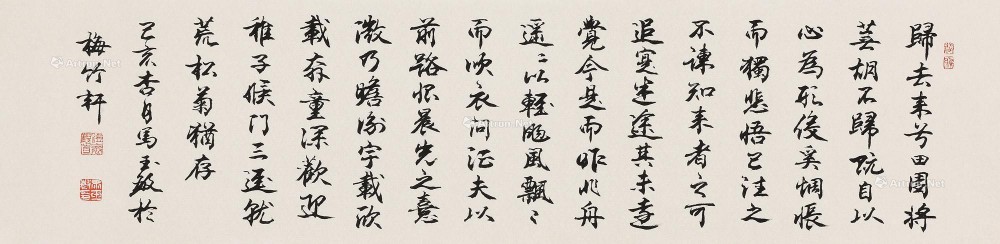 歸去来兮田園將
蕪胡不歸既自以
心為形役奚惆悵
而獨悲悟已往之
不諫知来者之可
追寔迷途其未遠
覺今是而昨非舟
遥〻以輕颺風飄〻
而吹衣問征夫以
前路恨晨光之熹
微乃瞻衡宇載欣
載奔童僕歡迎
稚子候門三逕就
荒松菊猶存
己亥杏月馬玉敏於
梅竹軒